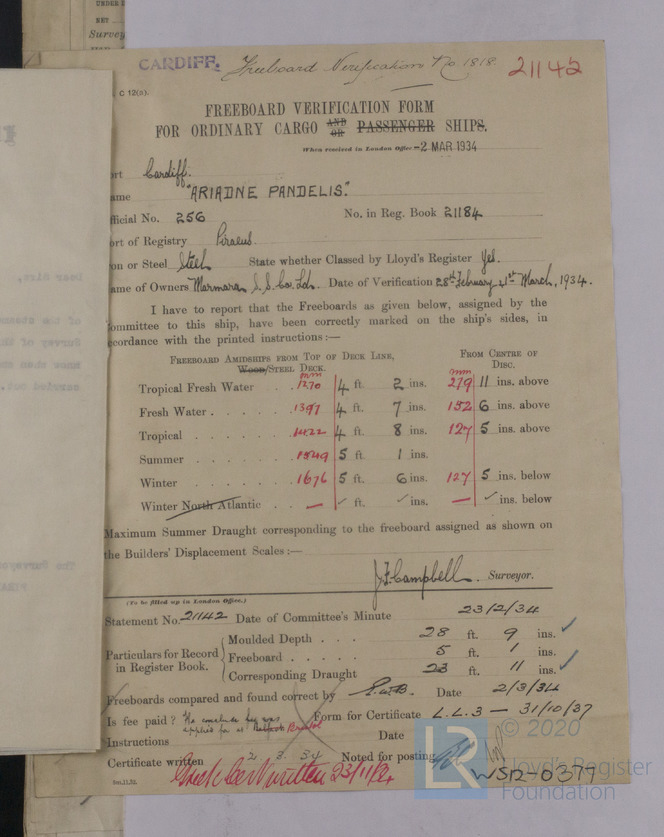 UNDER
NET
Survey
CARDIFF. Freeboard Verification No 1818. 21142
C 12(a).
FREEBOARD VERIFICATION FORM
FOR ORDINARY CARGO AND OR PASSENGER SHIPS.
When received in London Office -2 MAR 1934
ort Cardiff.
ame "ARIADNE PANDELIS."
fficial No. 256 No. in Reg. Book 21184
ort of Registry Piraeus.
on or Steel Steel State whether Classed by Lloyd's Register Yes.
ame of Owners Marmaran S.S. Co. Ltd. Date of Verification 28th February & 1st March, 1934.
I have to report that the Freeboards as given below, assigned by the
ommittee to this ship, have been correctly marked on the ship's sides, in
ccordance with the printed instructions:—
FREEBOARD AMIDSHIPS FROM TOP OF DECK LINE, WOOD/STEEL DECK. FROM CENTRE OF DISC.
mm mm
Tropical Fresh Water . . 1270 4 ft. 2 ins. 279 11 ins. above
Fresh Water . . . . . 1397 4 ft. 7 ins. 152 6 ins. above
Tropical . . . . . . 1422 4 ft. 8 ins. 127 5 ins. above
Summer . . . . . . 1549 5 ft. 1 ins.
Winter . . . . . . 1676 5 ft. 6 ins. 127 5 ins. below
Winter North Atlantic . . — ✓ ft. ✓ ins. — ✓ ins. below
Maximum Summer Draught corresponding to the freeboard assigned as shown on
the Builders' Displacement Scales:—
J.F. Campbell. Surveyor.
(To be filled up in London Office.)
Statement No. 21142 Date of Committee's Minute 23/2/34
Particulars for Record in Register Book.
Moulded Depth . . . 28 ft. 9 ins. ✓
Freeboard . . . . . 5 ft. 1 ins.
Corresponding Draught 23 ft. 11 ins. ✓
Freeboards compared and found correct by Date 2/3/34
Is fee paid? We conclude fee was applied for at Bristol Form for Certificate L.L.3 — 31/10/37
Instructions Date
Certificate written 2 3. 34 Noted for posting
Greek Cert written 23/11/34
© 2020
Lloyd's Register
Foundation
LR
WSR-0377